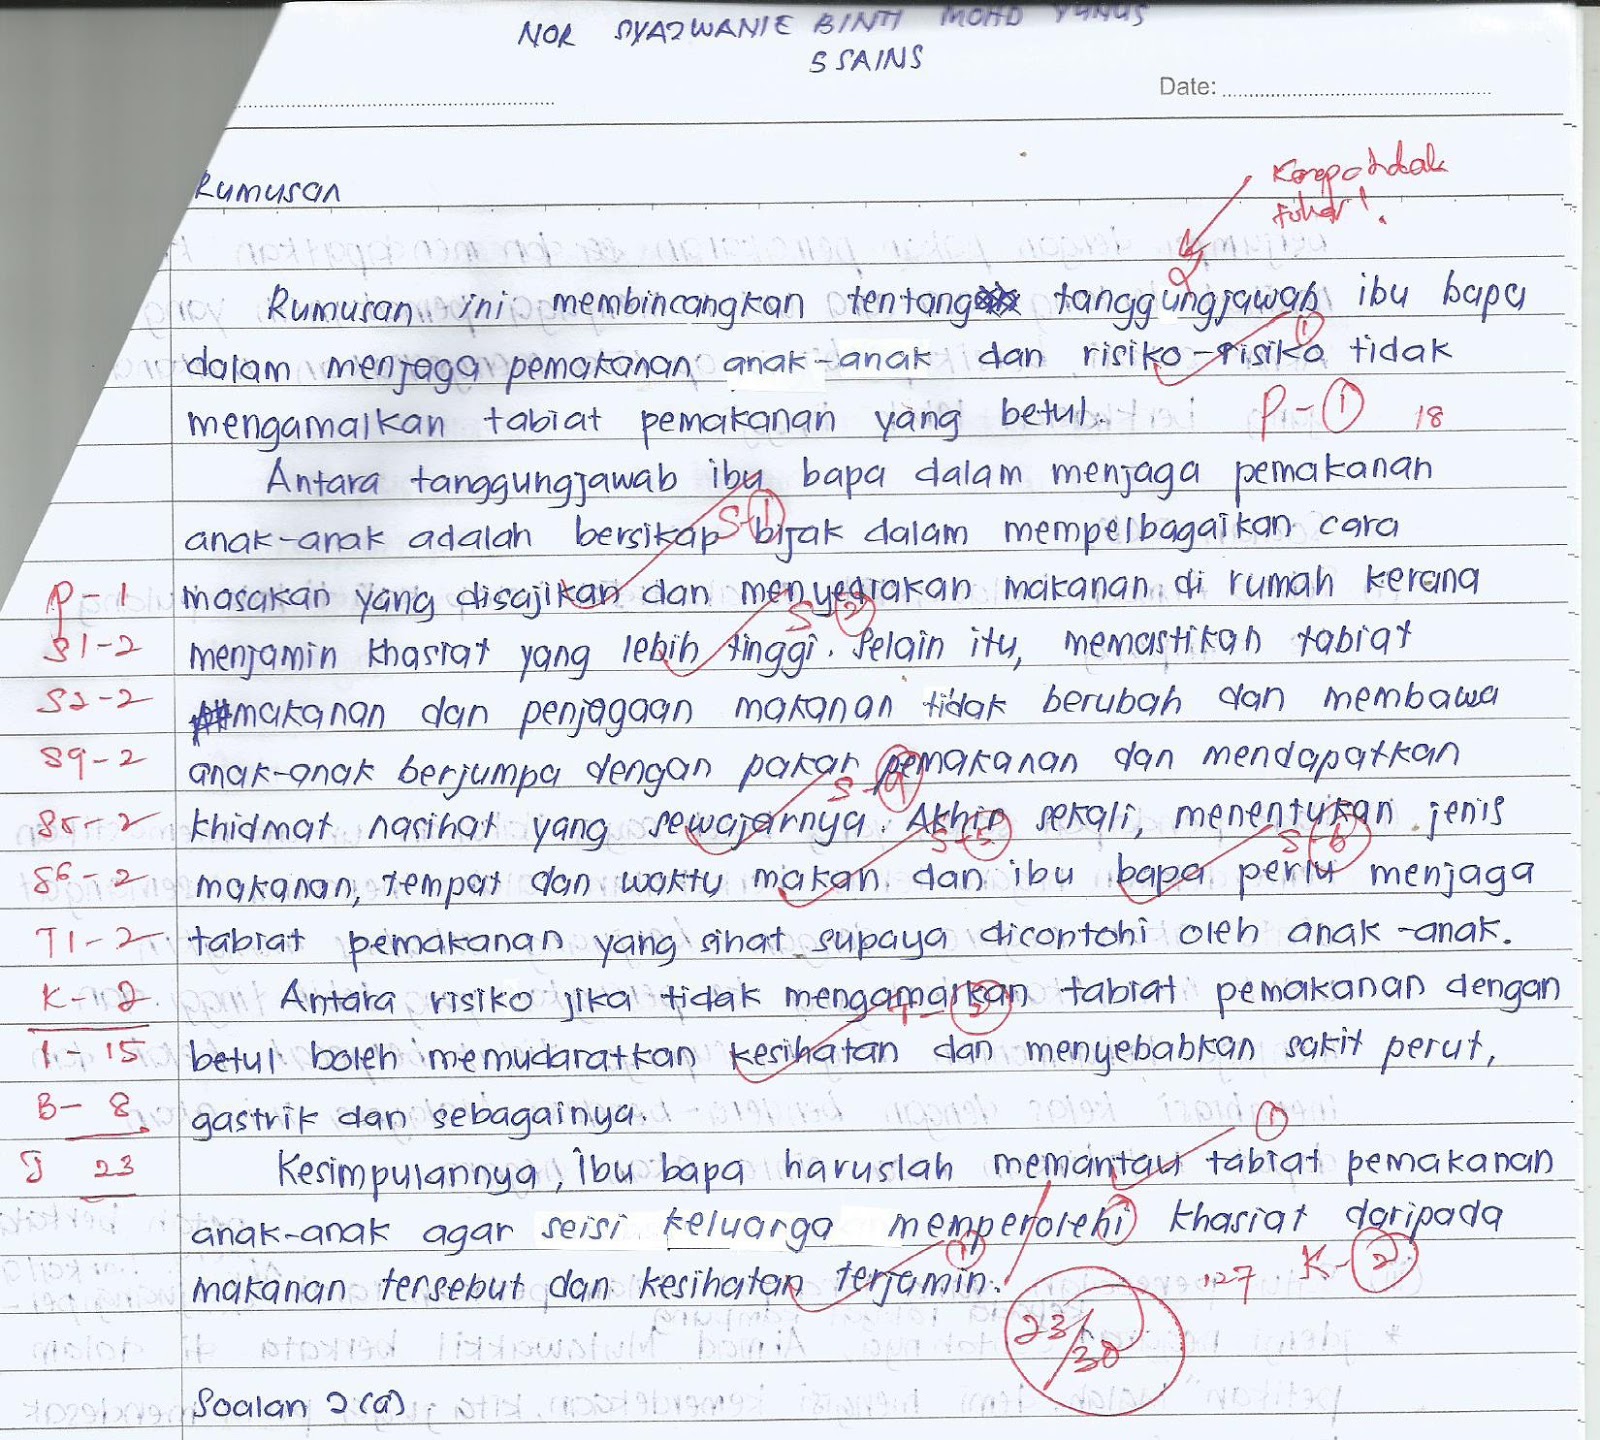 NOR SYAZWANIE BINTI MOHD YUNUS
5 SAINS
Date:
Rumusan
Rumusan ini membincangkan tentang tanggungjawab ibu bapa
dalam menjaga pemakanan anak-anak dan risiko-risiko tidak
1
mengamalkan tabiat pemakanan yang betul.
P-1 18
Antara tanggungjawab ibu bapa dalam menjaga pemakanan
S-1
anak-anak adalah bersikap bijak dalam mempelbagaikan cara
P-1
masakan yang disajikan dan menyediakan makanan di rumah kerana
S 2
S1-2
menjamin khasiat yang lebih tinggi. Selain itu, memastikan tabiat
S2-2
makanan dan penjagaan makanan tidak berubah dan membawa
S9-2
anak-anak berjumpa dengan pakar pemakanan dan mendapatkan
S-9
S5-2
khidmat nasihat yang sewajarnya. Akhir sekali, menentukan jenis
S-5 S-6
S6-2
makanan, tempat dan waktu makan dan ibu bapa perlu menjaga
T1-2
tabiat pemakanan yang sihat supaya dicontohi oleh anak-anak.
K-2
Antara risiko jika tidak mengamalkan tabiat pemakanan dengan
1-15
betul boleh memudaratkan kesihatan dan menyebabkan sakit perut,
B-8
gastrik dan sebagainya.
1
J 23
Kesimpulannya, Ibu bapa haruslah memantau tabiat pemakanan
anak-anak agar seisi keluarga memperolehi khasiat daripada
1
makanan tersebut dan kesihatan terjamin.
127 K-2
23/30
Soalan 2(a)